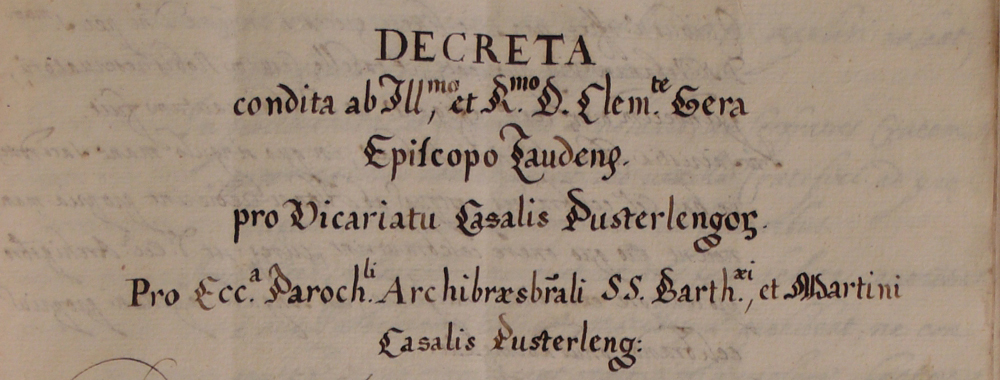 DECRETA
condita ab Ill.mo, et R.mo D. Clem.te Gera
Episcopo Laudenꝭ.
pro Vicariatu Casalis Pusterlengoꝝ.
Pro Ecc.a Paroch.li Archibræsbr̃ali SS. Barth.æi, et Martini
Casalis Pusterleng: